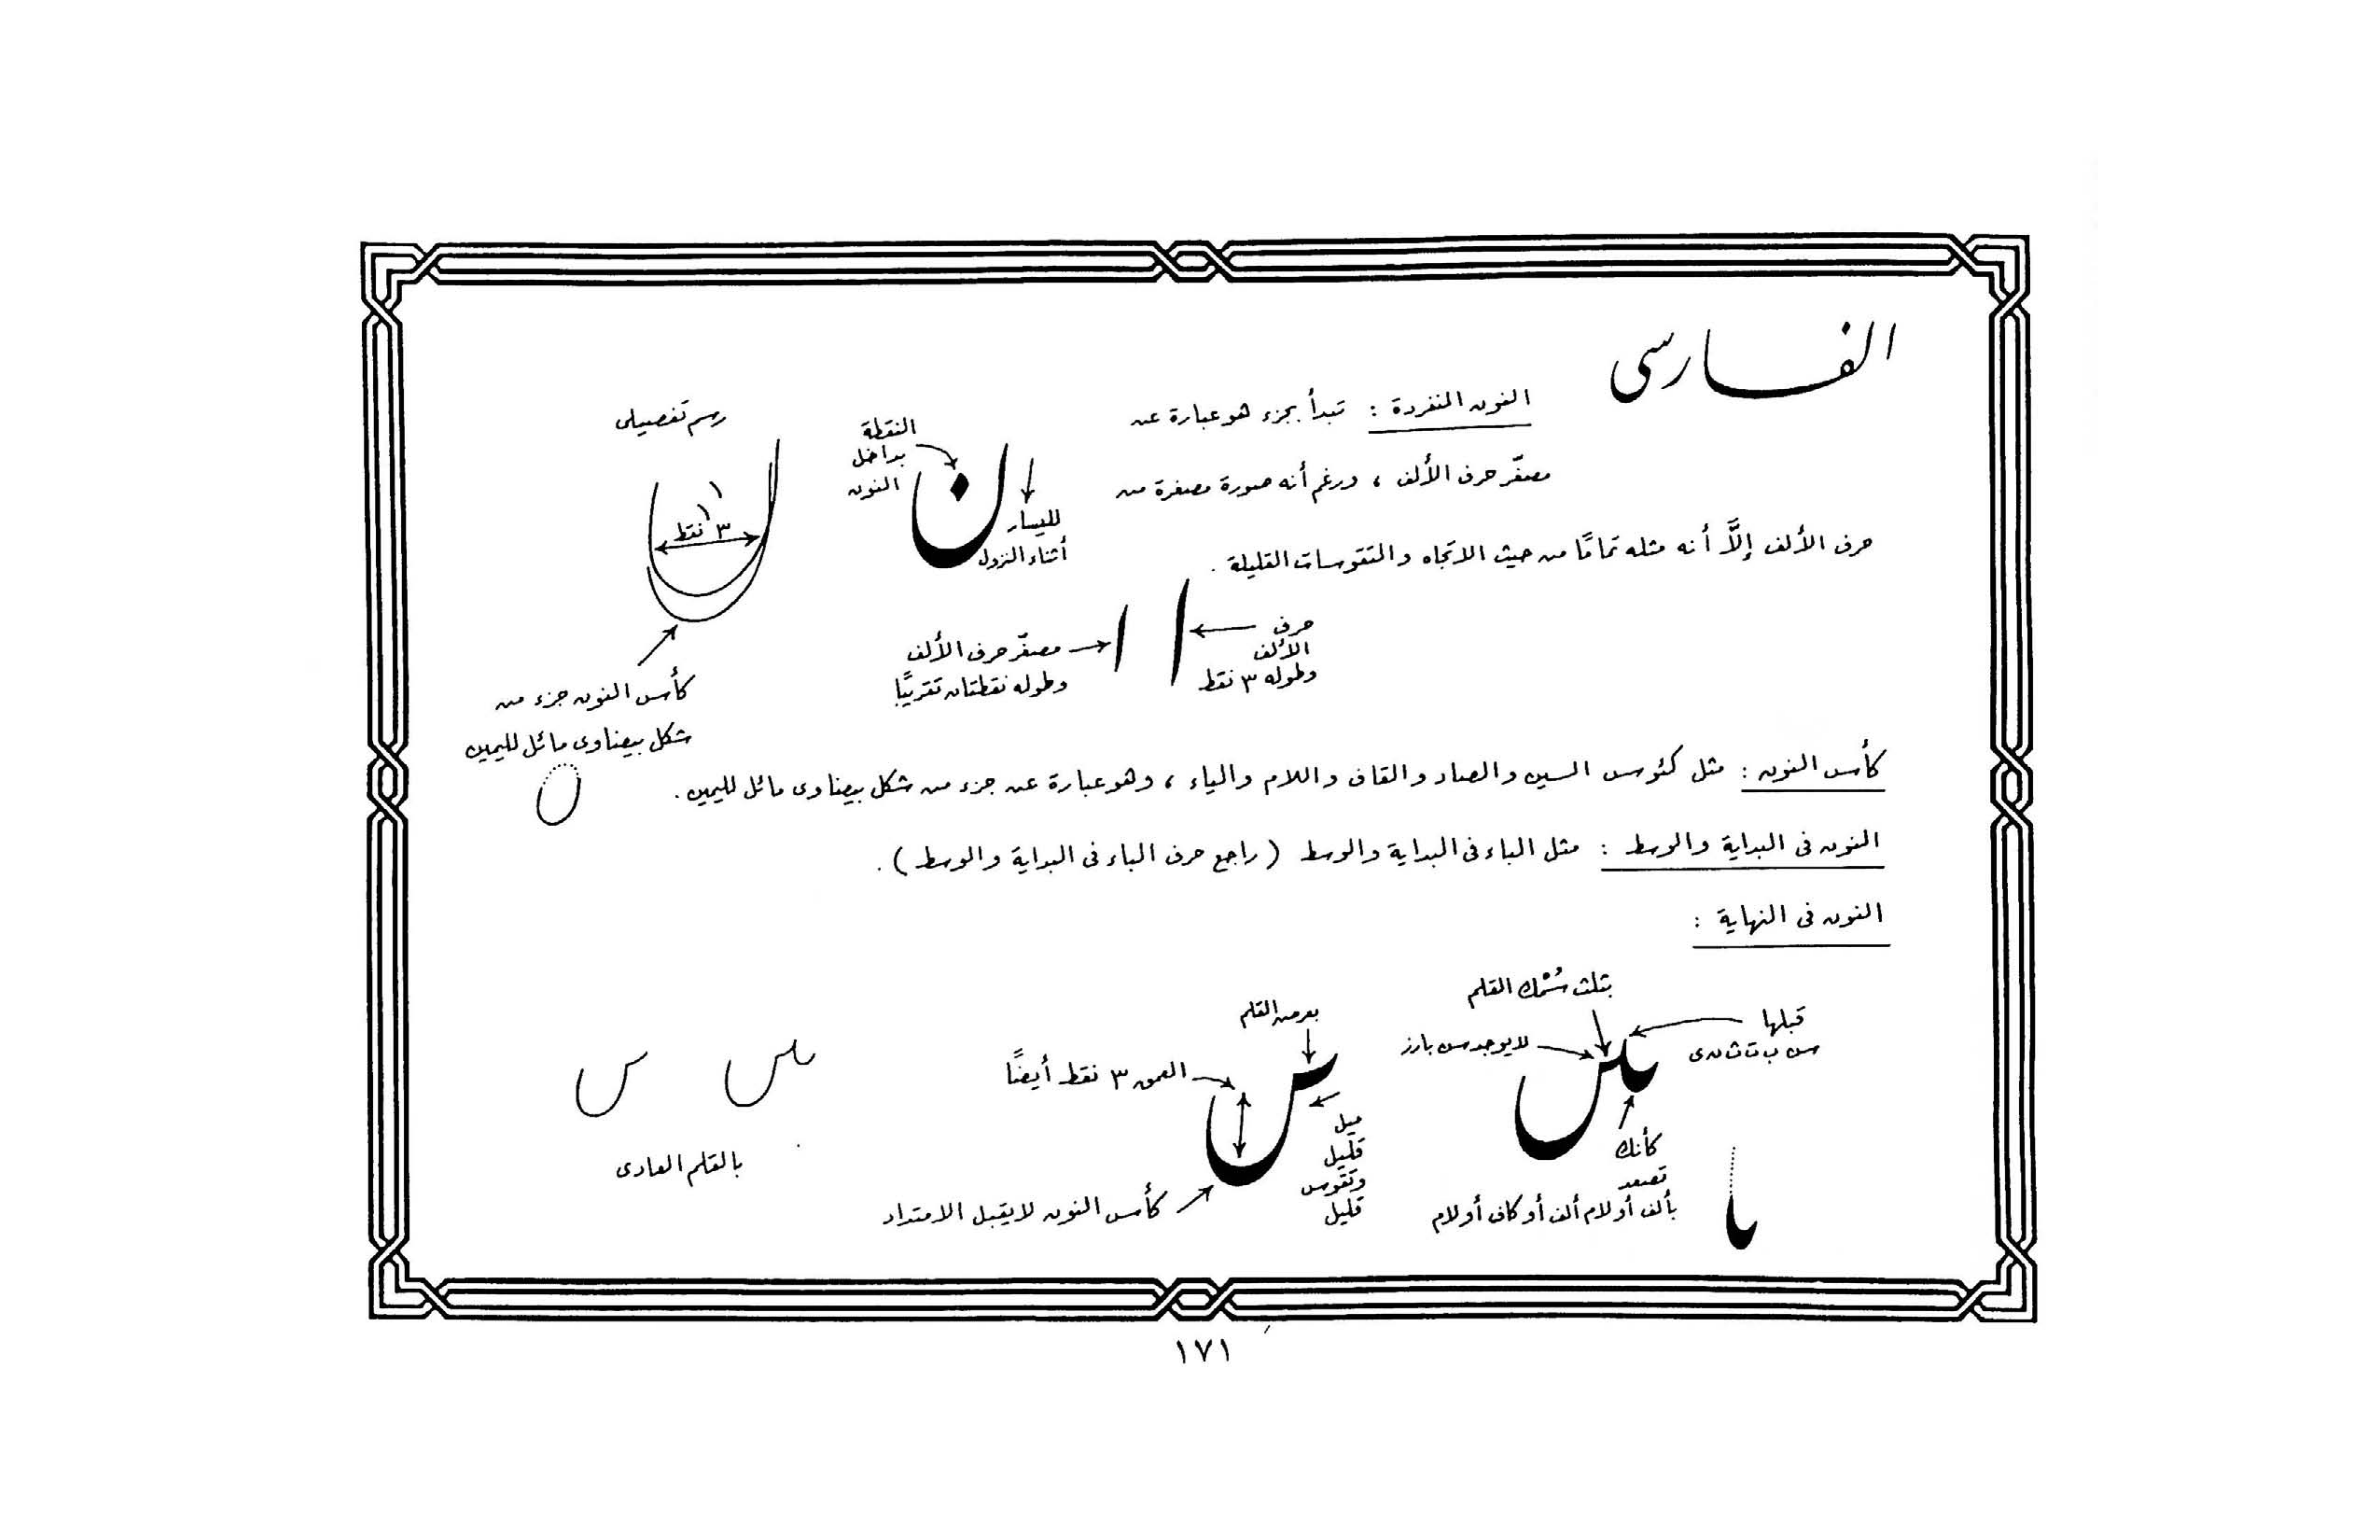 الفارسى
النون المنفردة : تبدأ بجزء هو عبارة عن
مصغّر حرف الألف ، ورغم أنه صورة مصغرة من
حرف الألف إلاَّ أنه مثله تمامًا من حيث الاتجاه والتقوسات القليلة .
للييسار
أثناء النزول
النقطة
بداخل
النون
رسم تفصيلى
٣ نقط
حرف
الألف
وطوله ٣ نقط
مصغّر حرف الألف
وطوله نقطتان تقريبًا
كأس النون جزء من
شكل بيضاوى مائل لليمين
كأس النون : مثل كئوس السين والصاد والقاف واللام والياء ، وهو عبارة عن جزء من شكل بيضاوى مائل لليمين .
النون فى البداية والوسط : مثل الباء فى البداية والوسط ( راجع حرف الباء فى البداية والوسط ) .
النون فى النهاية :
بثلث سُمْك القلم
قبلها
س ب ت ث ن ى
لا يوجد سن بارز
كأنك
تصعد
بألف أو لام ألف أو كاف أو لام
بعرض القلم
العمق ٣ نقط أيضًا
ميل
قليل
وتقوس
قليل
كأس النون لا يقبل الامتداد
بالقلم العادى
١٧١